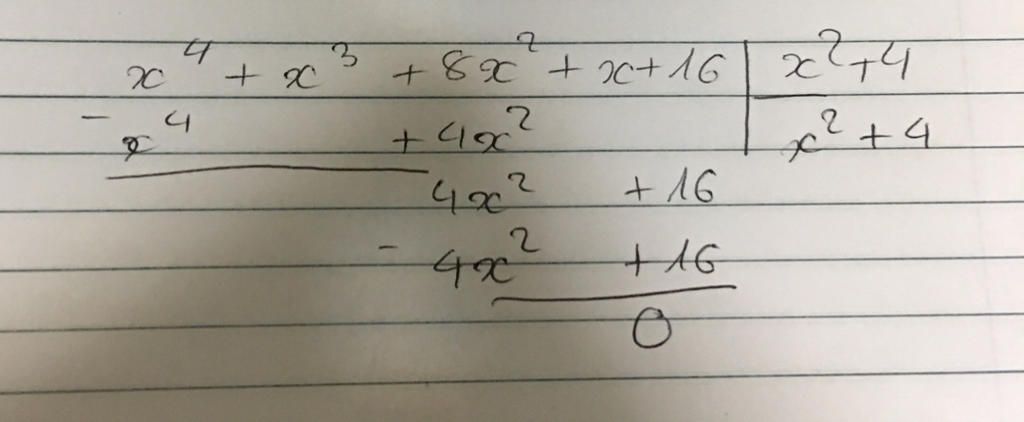 x⁴ + x³ + 8x² + x + 16 | x² + 4
- x⁴ + 4x² | x² + 4
4x² + 16
- 4x² + 16
0